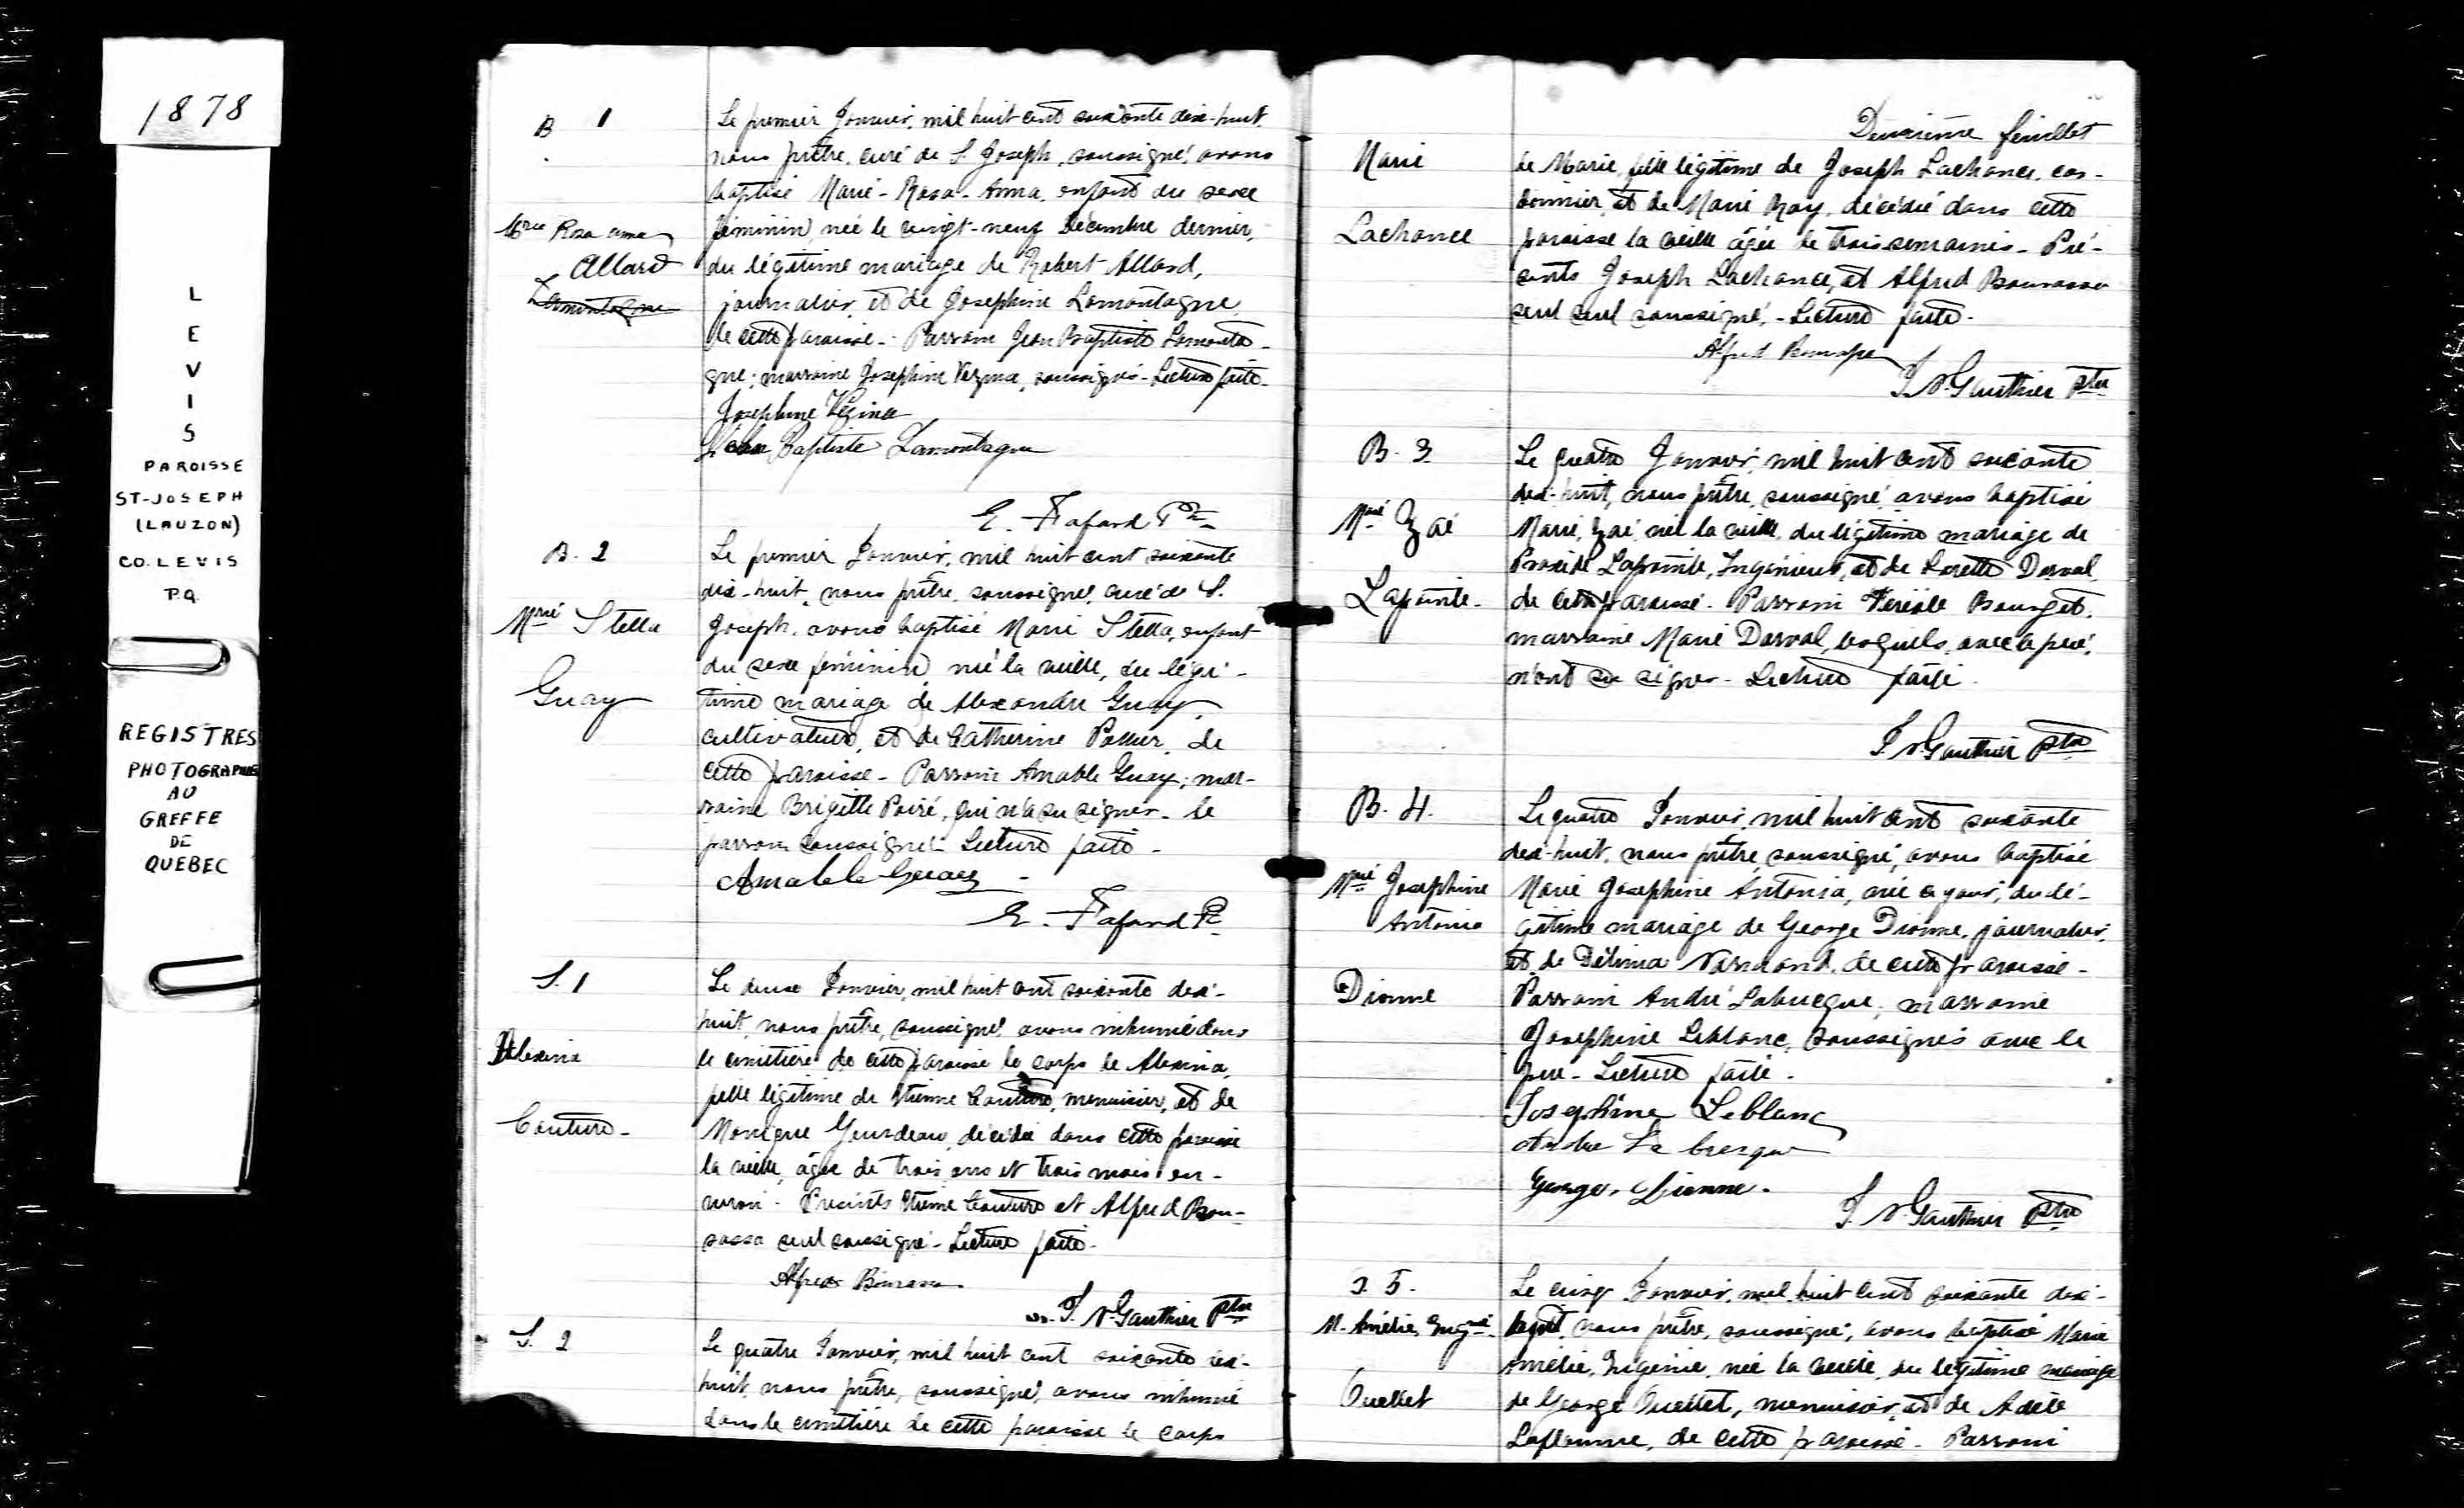 1878
L
E
V
I
S
PAROISSE
ST-JOSEPH
(LAUZON)
CO. LEVIS
P.Q.
REGISTRES
PHOTOGRAPHIÉS
AU
GREFFE
DE
QUEBEC
B 1
Mrie Rosa anna
Allard
Lamontagne
Le premier Janvier, mil huit cent soixante dix-huit,
nous prêtre, curé de S. Joseph, soussigné, avons
baptisé Marie-Rosa-Anna, enfant du sexe
féminin, née le vingt-neuf Décembre dernier,
du légitime mariage de Robert Allard,
journalier, et de Josephine Lamontagne,
de cette paroisse - Parrain Jean Baptiste Lamonta-
gne; marraine Josephine Vezina, soussignés - Lecture faite -
Josephine Vézina
Jean Baptiste Lamontagne
E. Fafard Ptre
B. 2
Mrie Stella
Guay
Le premier Janvier, mil huit cent soixante
dix-huit, nous prêtre, soussigné, curé de S.
Joseph, avons baptisé Marie Stella, enfant
du sexe féminin, née la veille, du légi-
time mariage de Alexandre Guay,
cultivateur, et de Catherine de
cette paroisse - Parrain Amable Guay; mar-
raine Brigitte Poiré, qui n'a su signer - le
parrain soussigné - Lecture faite -
Amable Guay -
E. Fafard Ptre
S. 1
Alexina
Couture -
Le deux Janvier, mil huit cent soixante dix-
huit, nous prêtre, soussigné, avons inhumé dans
le cimetière de cette paroisse le corps de Alexina,
fille légitime de Etienne Couture, menuisier, et de
Monique Gourdeau, décédée dans cette paroisse
la veille, âgée de trois ans et trois mois en-
viron - Présents Etienne Couture et Alfred Bou-
rassa seul soussigné - Lecture faite -
Alfred Bourassa
J. N. Gauthier Ptre
S. 2
Le quatre Janvier, mil huit cent soixante dix-
huit, nous prêtre, soussigné, avons inhumé
dans le cimetière de cette paroisse le corps
Deuxième feuillet
Marie
Lachance
de Marie, fille légitime de Joseph Lachance, cor-
donnier, et de Marie Roy, décédée dans cette
paroisse la veille âgée de trois semaines - Pré-
sents Joseph Lachance, et Alfred Bourassa
seul seul soussigné, - Lecture faite -
Alfred Bourassa
J. N. Gauthier Ptre
B. 3.
Mrie Zaé
Lapointe -
Le quatre Janvier, mil huit cent soixante
dix-huit, nous prêtre, soussigné, avons baptisé
Marie, Zaé, née la veille, du légitime mariage de
Lapointe, Ingénieur, et de Dorval
de cette paroisse - Parrain Bourget,
marraine Marie Dorval, lesquels, avec le père,
n'ont su signer - Lecture faite.
J. N. Gauthier Ptre
B. 4.
Mrie Josephine
Antonia
Dionne
Le quatre Janvier, mil huit cent soixante
dix-huit, nous prêtre, soussigné, avons baptisé
Marie Josephine Antonia, née ce jour, du lé-
gitime mariage de George Dionne, journalier,
et de Délima Normand, de cette paroisse -
Parrain André Labrecque, marraine
Josephine Leblanc, soussignés avec le
père - Lecture faite.
Josephine Leblanc
Andre La brecque
George Dionne.
J. N. Gauthier Ptre
B. 5.
M. Amélie, Eugénie
Ouellet
Le cinq Janvier, mil huit cent soixante dix-
huit, nous prêtre, soussigné, avons baptisé Marie
Amélie, Eugénie, née la veille, du légitime mariage
de George Ouellet, menuisier, et de Adèle
Laflamme, de cette paroisse - Parrain